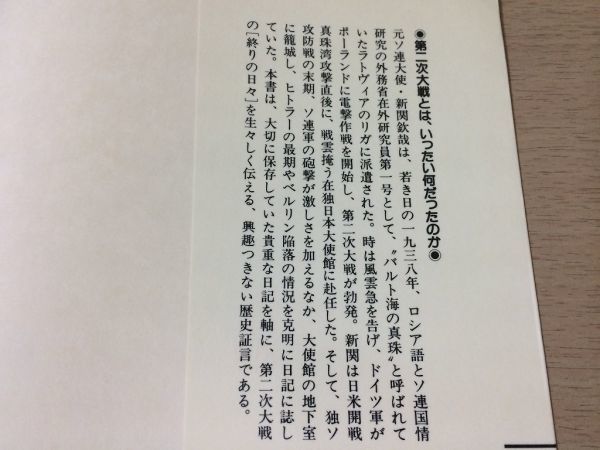 ◉第二次大戦とは、いったい何だったのか◉
元ソ連大使・新関欽哉は、若き日の一九三八年、ロシア語とソ連国情
研究の外務省在外研究員第一号として、〝バルト海の真珠〟と呼ばれて
いたラトヴィアのリガに派遣された。時は風雲急を告げ、ドイツ軍が
ポーランドに電撃作戦を開始し、第二次大戦が勃発。新関は日米開戦
真珠湾攻撃直後に、戦雲掩う在独日本大使館に赴任した。そして、独ソ
攻防戦の末期、ソ連軍の砲撃が激しさを加えるなか、大使館の地下室
に籠城し、ヒトラーの最期やベルリン陥落の情況を克明に日記に誌し
ていた。本書は、大切に保存していた貴重な日記を軸に、第二次大戦
の［終りの日々］を生々しく伝える、興趣つきない歴史証言である。